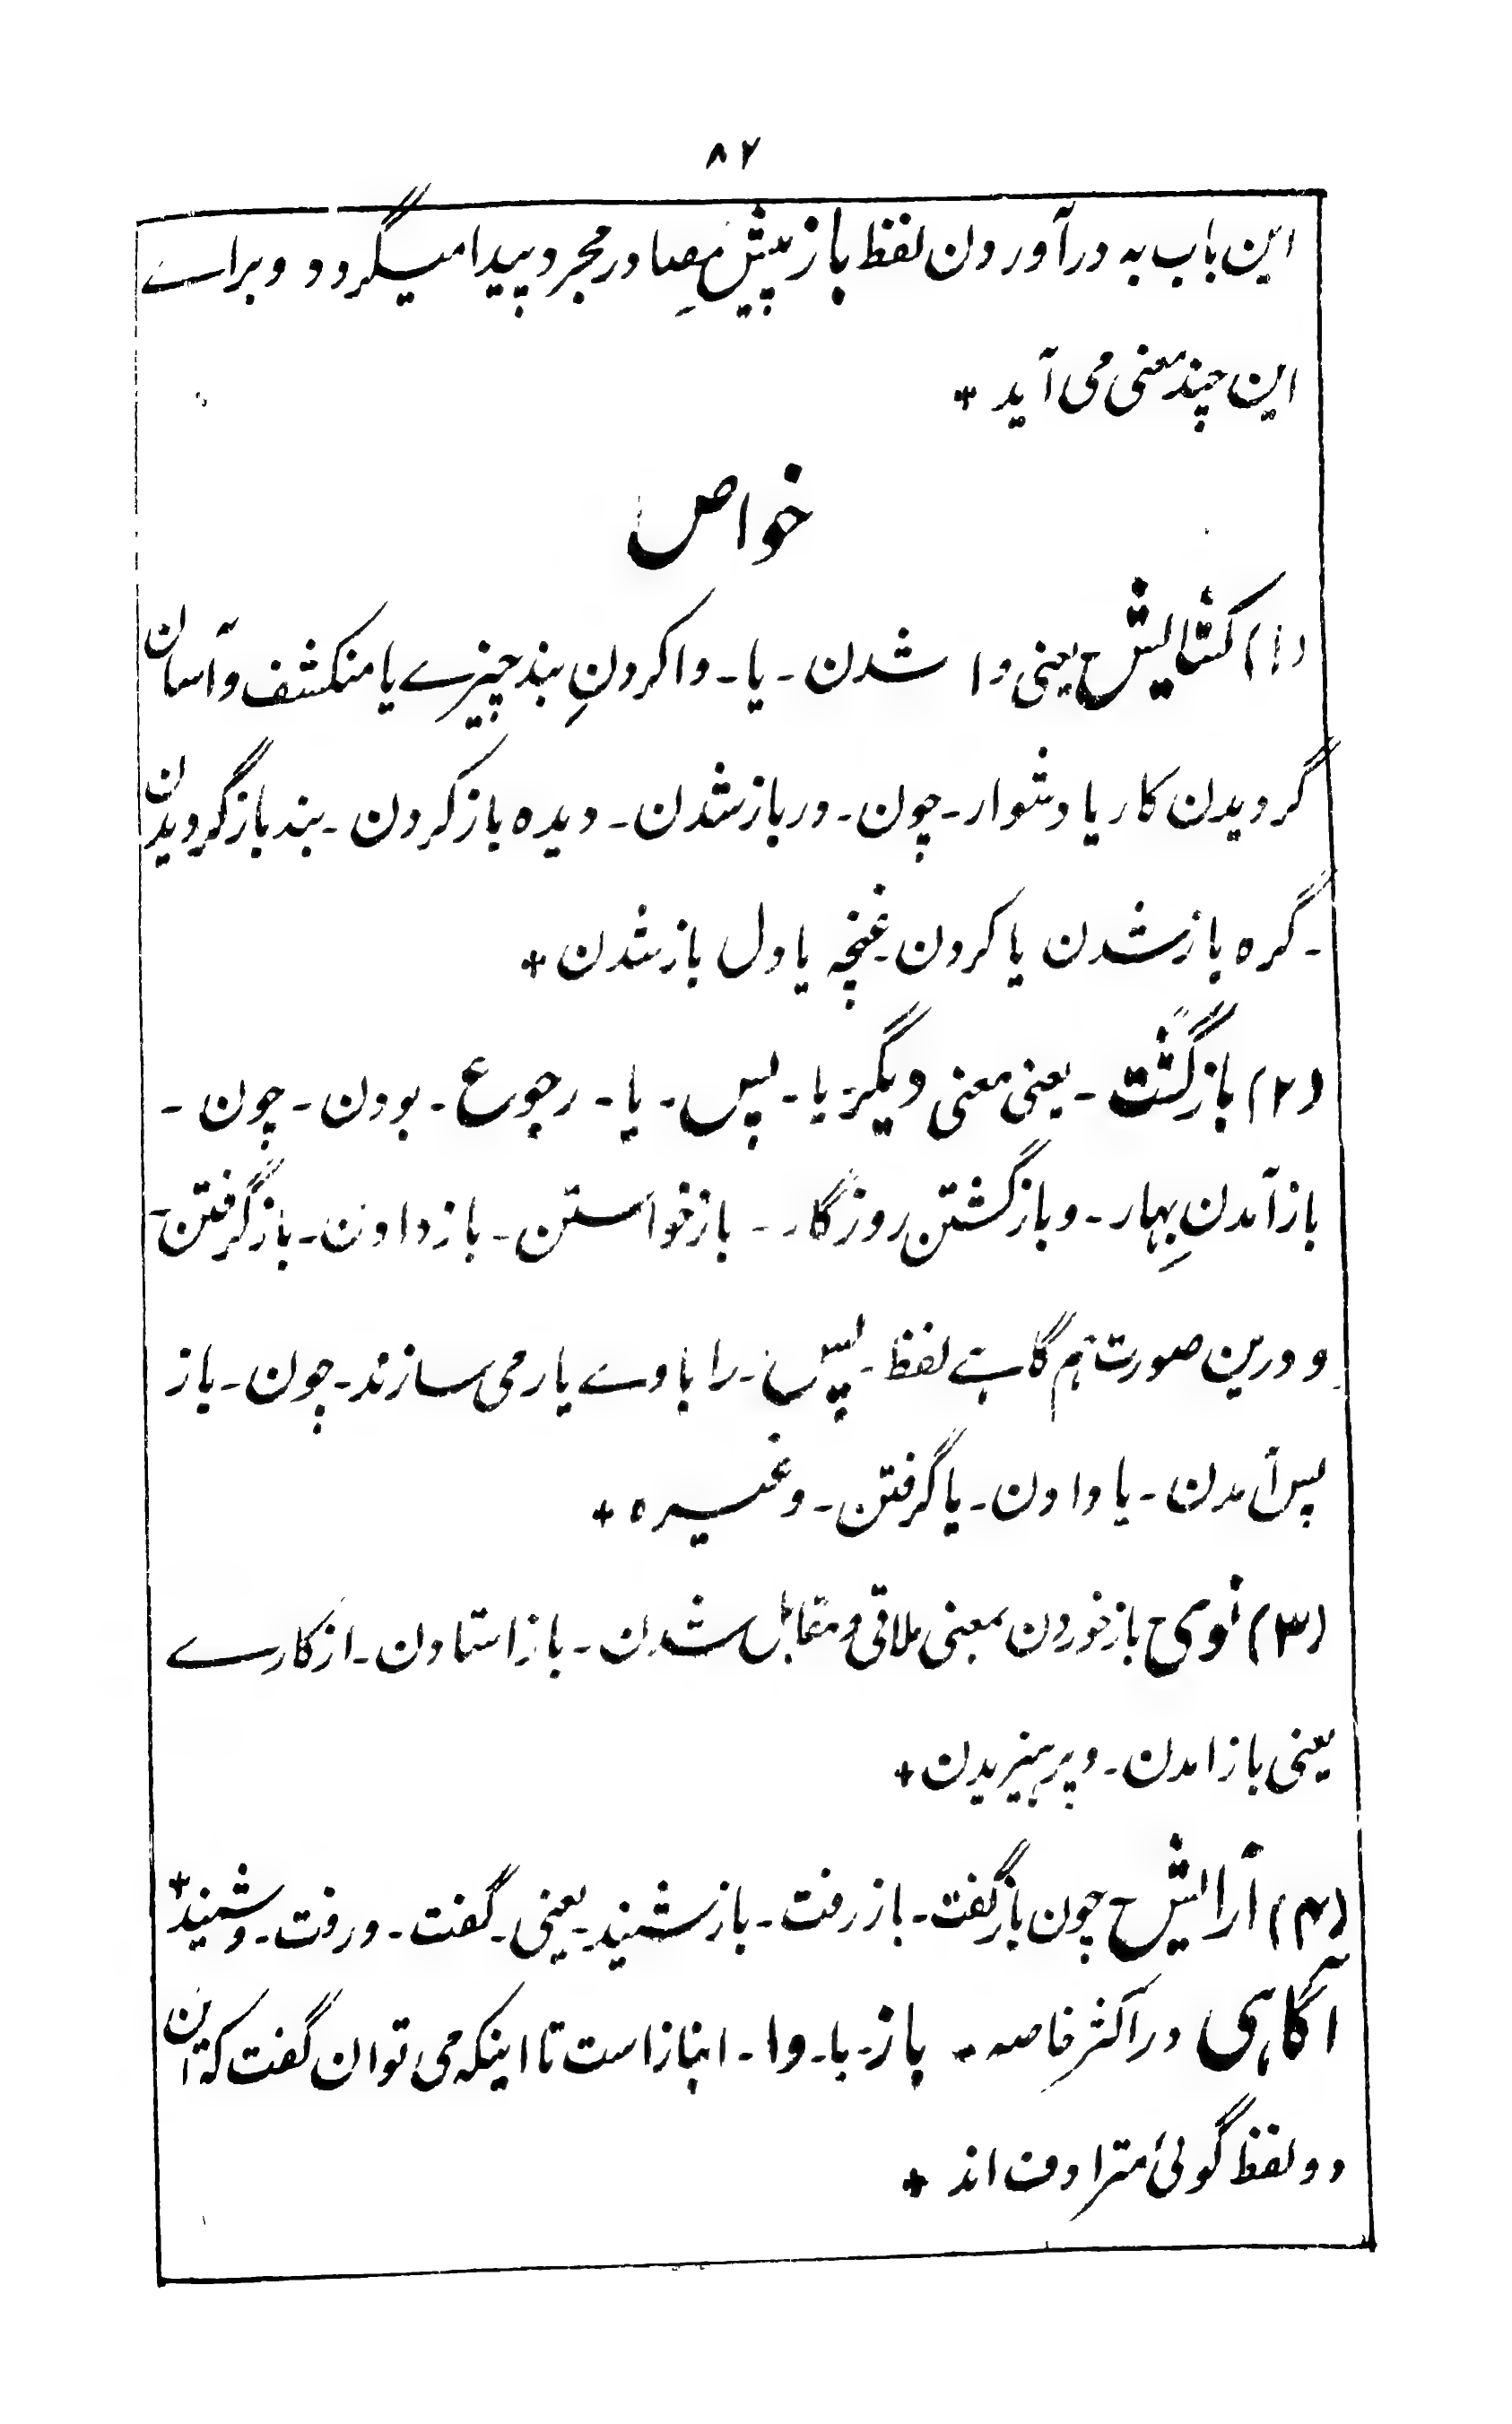 ۸۲
این باب به درآوردن لفظ باز پیشِ مصادر مجرد پیدا میگردد و براے
این چند معنی می آید +
خواص
(۱) کشایش ـ یعنی وا شدن ـ یا ـ وا کردنِ بند چیزے یا منکشف و آسان
گردیدن کار یا دشوار ـ چون ـ در باز شدن ـ دیده باز کردن ـ بند باز گردیدن
ـ گره باز شدن یا کردن ـ غنچه یا دل باز شدن +
(۲) بازگشت ـ یعنی معنی دیگر ـ یا ـ پس ـ یا ـ رجوع ـ بودن ـ چون ـ
باز آمدنِ بهار ـ و باز گشتن روزگار ـ باز خواستن ـ باز دادن ـ باز گرفتن ـ
و درین صورت هم گاہے لفظ ـ پس ـ را باوے یار می سازند ـ چون ـ باز
پس آمدن ـ یا دادن ـ یا گرفتن ـ وغیره +
(۳) نوی ـ باز خوردن بمعنی ملاقی و مقابل شدن ـ باز استادن ـ از کارے
یعنی باز آمدن ـ و پرهیزیدن +
(۴) آرایش ـ چون باز گفت ـ باز رفت ـ باز شنید ـ یعنی ـ گفت ـ و رفت ـ و شنید +
آگاہی در اکثرِ خاصه ـ باز ـ با ـ وا ـ انباز است تا اینکه می توان گفت که این
دو لفظ گوئی مترادف اند +